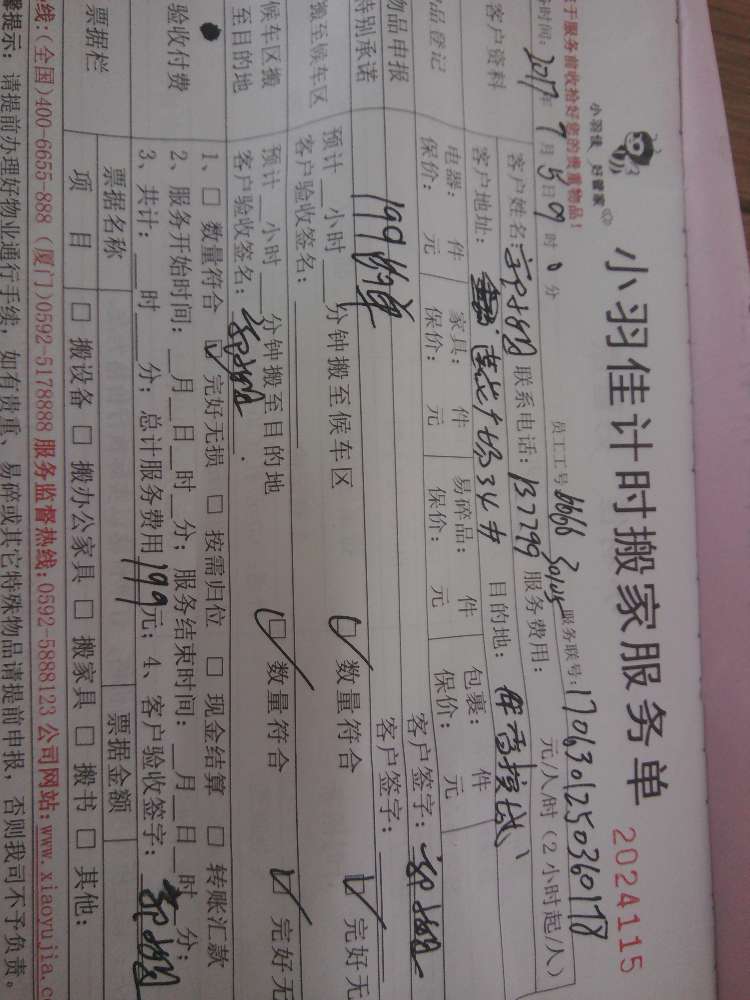 小羽佳 好管家
小羽佳计时搬家服务单 2024115
于服务前收拾好您的贵重物品!
员工工号 6666 服务联号: 170630125036078
时间: 2017年7月5日9时 分
客户资料 客户姓名: 联系电话: 137799 服务费用: 元/人/时 (2小时起/人)
客户地址: 34# 目的地:
品登记 电器: 件 家具: 件 易碎品: 件 包裹: 件
保价: 元 保价: 元 保价: 元 保价: 元
物品申报 客户签字:
特别承诺 199的单 客户签字:
搬至候车区 预计 小时 分钟搬至候车区 数量符合 完好无
客户验收签名:
候车区搬至目的地 预计 小时 分钟搬至目的地 数量符合 完好无
客户验收签名:
验收付费 1、 数量符合 完好无损 按需归位 现金结算 转账汇款
2、服务开始时间: 月 日 时 分; 服务结束时间: 月 日 时 分;
3、共计: 时 分; 总计服务费用 199元; 4、客户验收签字:
票据栏 票据名称 票据金额
项目 搬设备 搬办公家具 搬家具 搬书 其他:
线:(全国)400-6655-888 (厦门)0592-5178888 服务监督热线:0592-5888123 公司网站:www.xiaoyujia.c
馨提示: 请提前办理好物业通行手续, 如有贵重、易碎或其它特殊物品请提前申报, 否则我司不予负责。